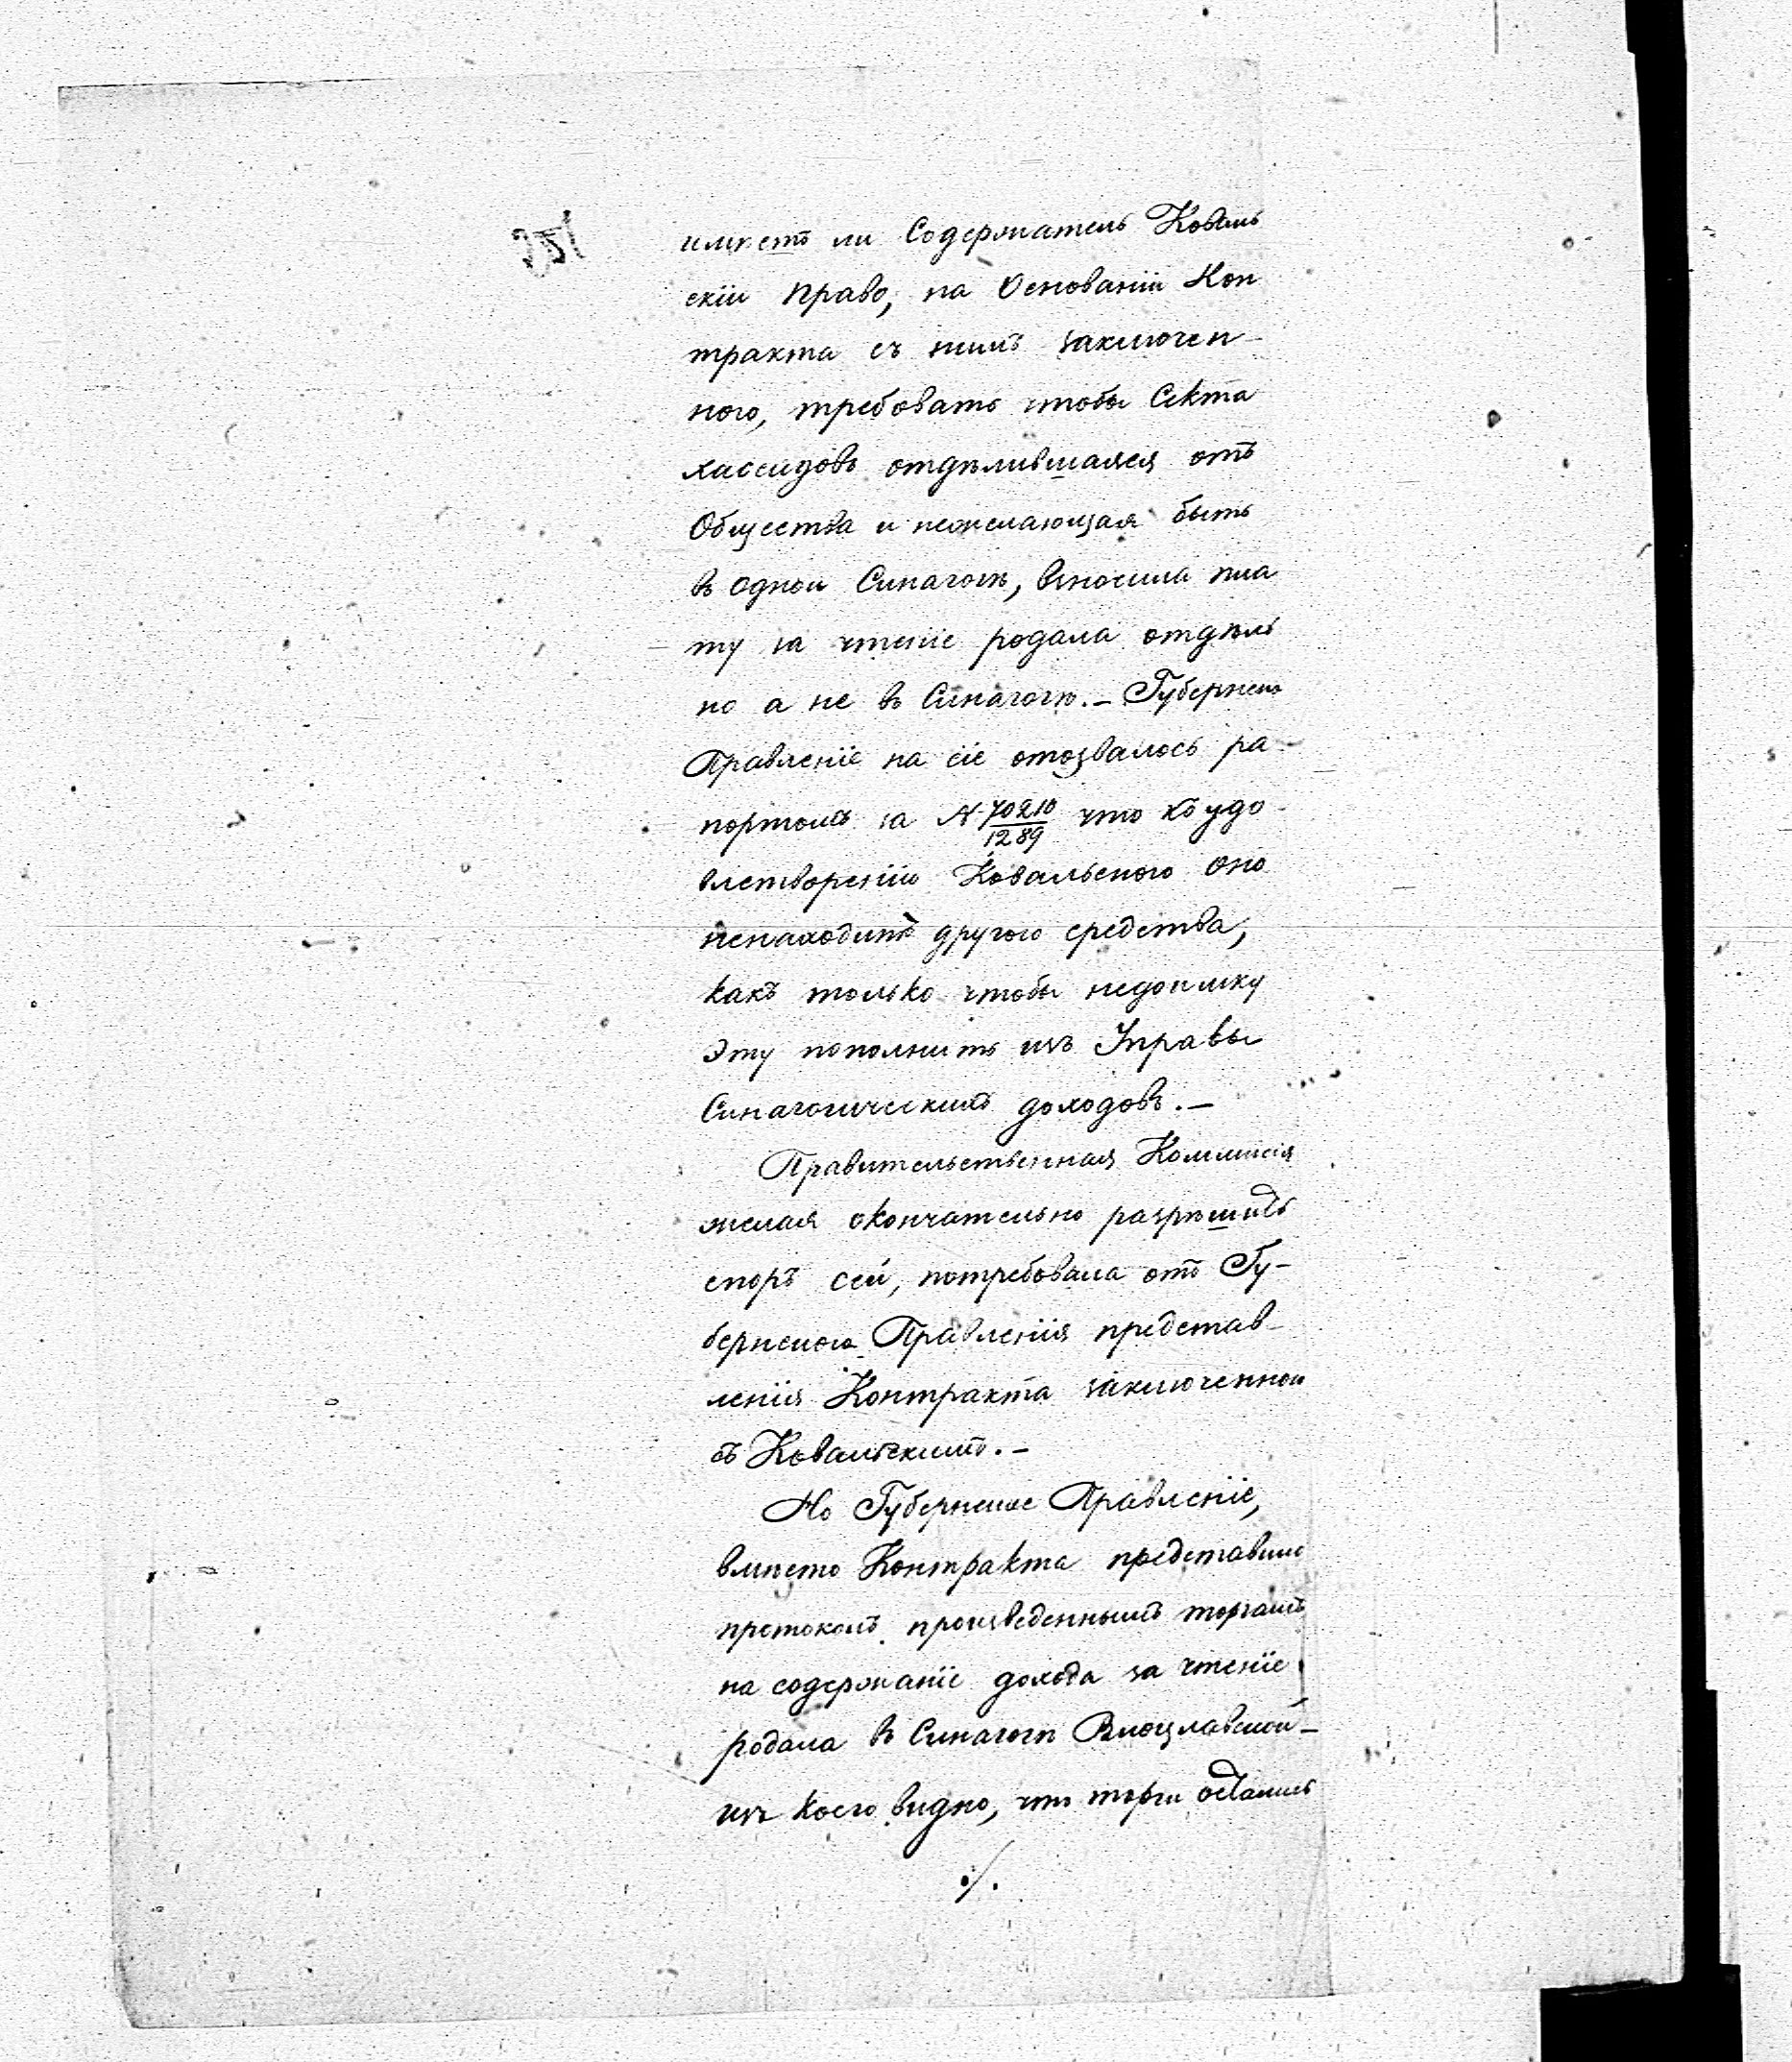 имѣетъ ли Содержатель Коваль
скій право, на Основаніи Кон
тракта съ нимъ заключен-
ного, требовать чтобы Секта
хассидовъ отдѣлившаяся отъ
Общества и нежелающая быть
въ одной Синагогѣ, вносила пла
ту за чтеніе родала отдѣль
но а не въ Синагогѣ.— Губернско
Правленіе на сіе отозвалось ра-
портомъ за N 70210/1289 что къ удо-
влетворенію Ковальского оно
ненаходитъ другого средства,
какъ только чтобы недоимку
эту пополнить изъ Управы
Синагогическихъ доходовъ.—
Правительственная Коммисія
желая окончательно разрѣшить
споръ сей, потребовала отъ Гу-
бернского Правленія представ-
ленія Контракта заключенного
съ Ковальскимъ.—
Но Губернское Правленіе,
вмѣсто Контракта представило
протоколъ произведеннымъ торгамъ
на содержаніе дохода за чтеніе
родала въ Синагогѣ Влоцлавской—
изъ коего видно, что торги остались
·/.